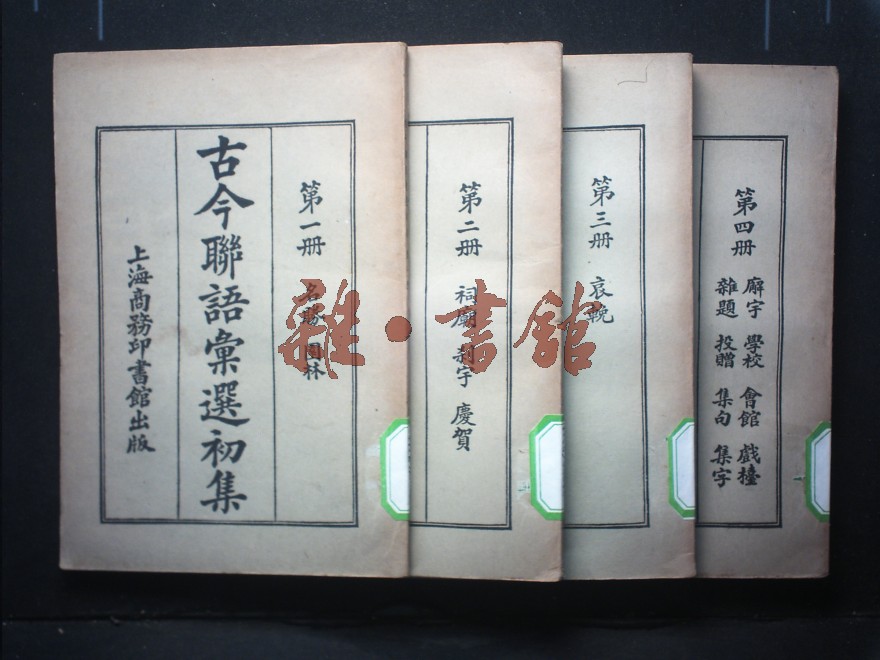 古今聯語彙選初集
第一册
名勝 園林
上海商務印書館出版
第二册
祠廟 刹宇 慶賀
第三册
哀輓
第四册
廨宇 學校 會館 戲檯
雜題 投贈 集句 集字
雜·書館